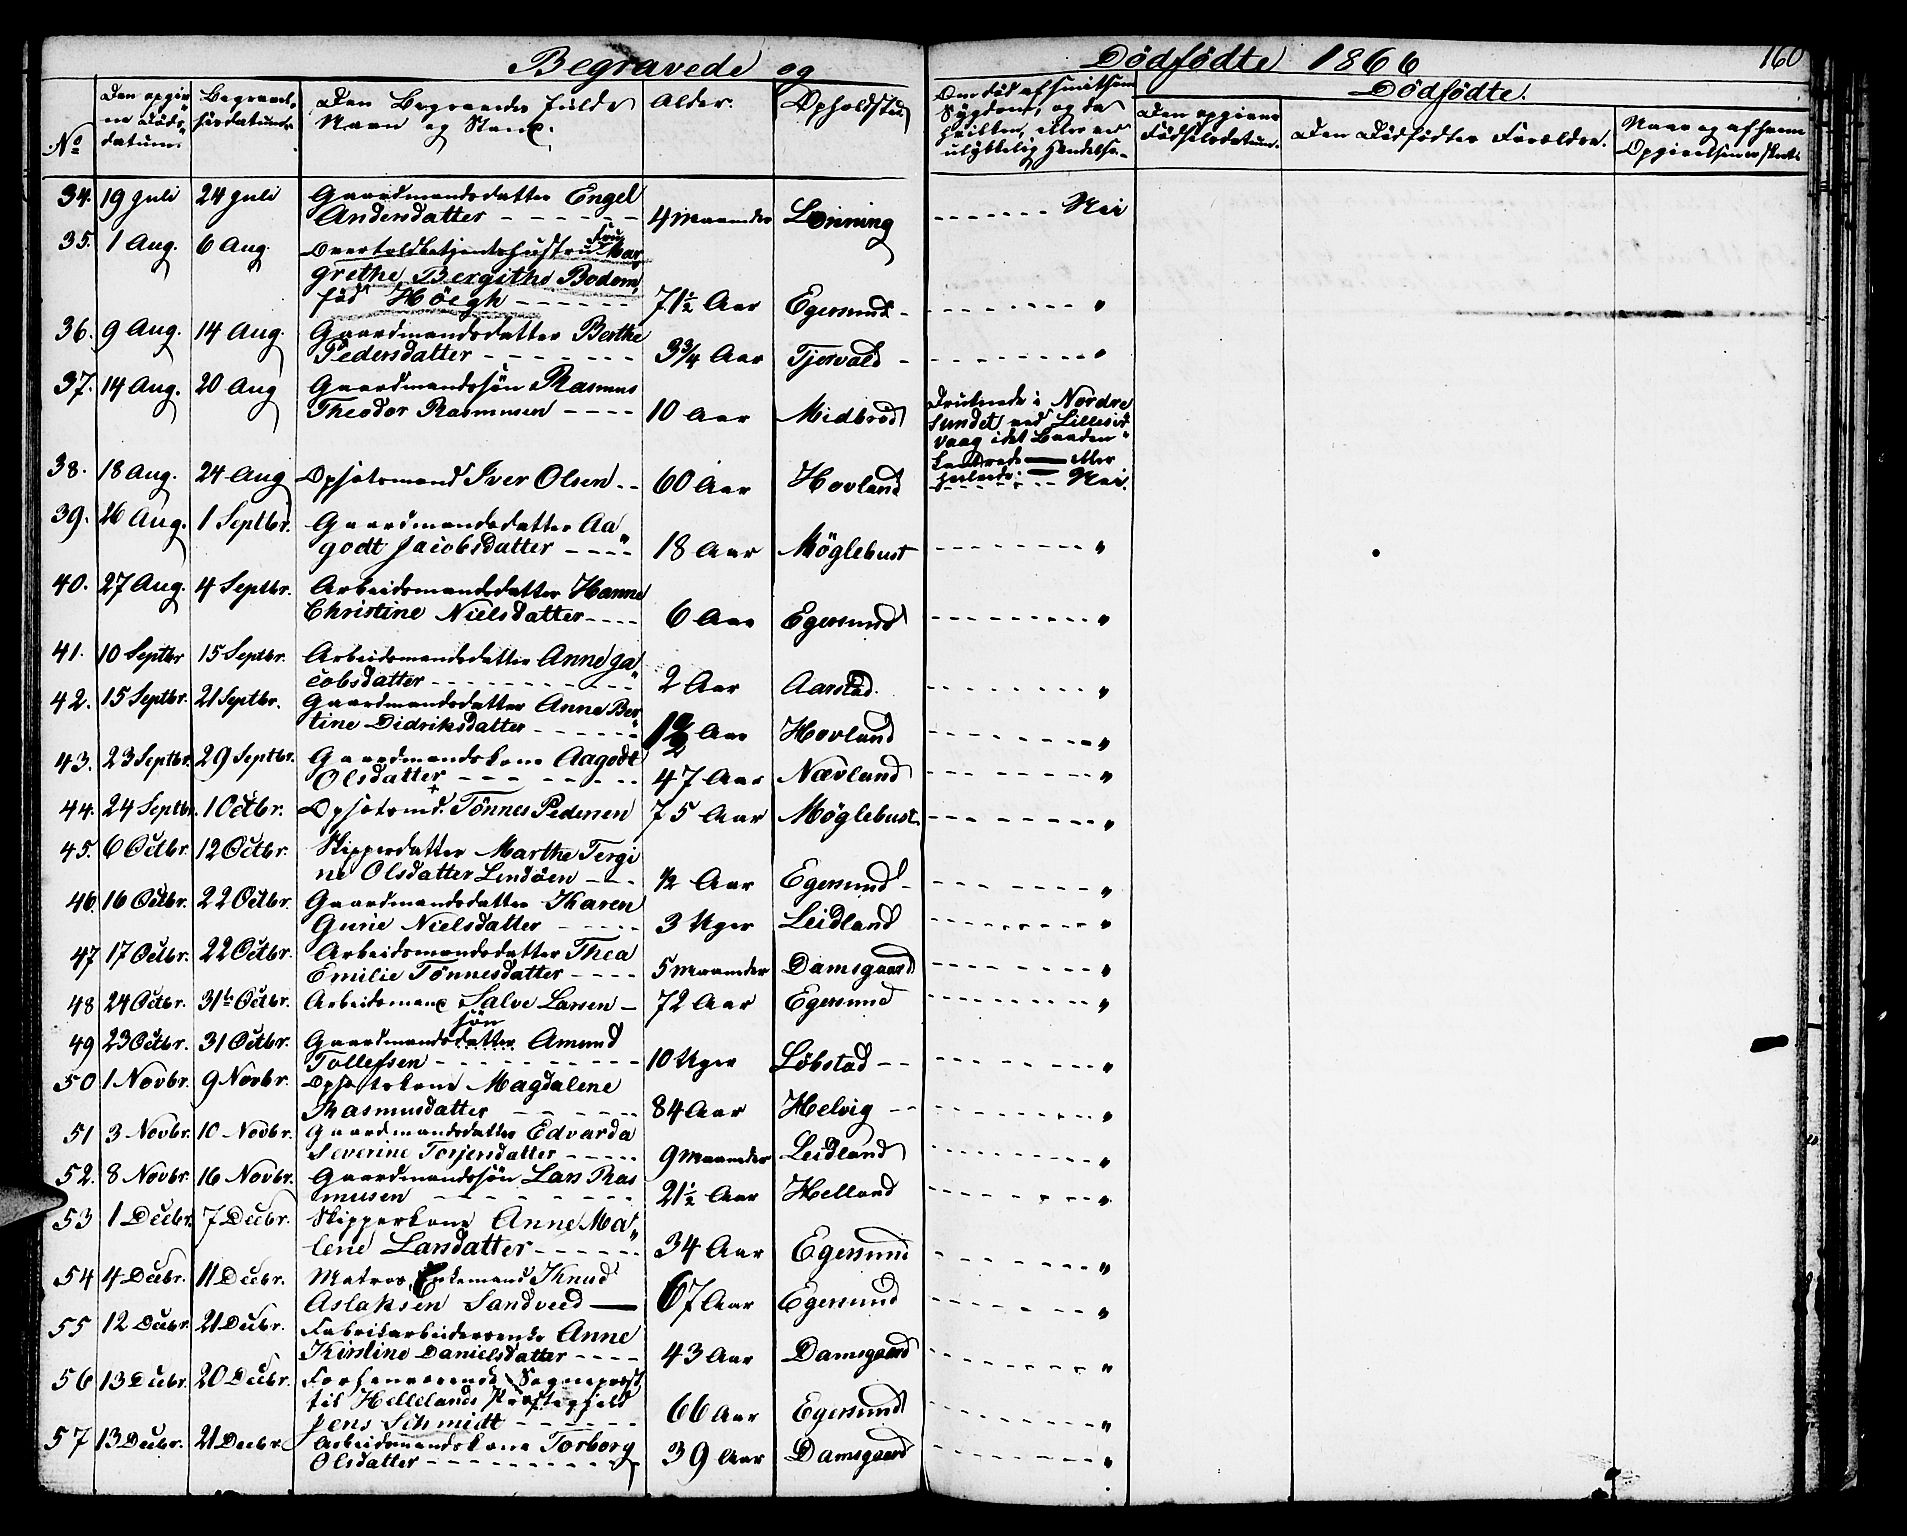 Begravede og Dödfödte 1866 160
No
Den opgivne Døds datum.
Begravelsesdatum.
Den Begravedes fulde Navn og Stand.
Alder.
Opholdsted
Om död af smitsom Sygdom, og da hvilken, eller ved ulykkelig Hændelse.
Dödfödte.
Den opgivne Födselsdatum.
Den Dödfödtes Forældre.
Naar og af hvem Opgivelsen er skeet.
34. 19 Juli 24 Juli Gaardmandsdatter Engel
Andersdatter - - - - - - 4 Maaneder Lönning - - - - - - - Nei
35. 1 Aug. 6 Aug. Overtoldbetjentshustru Fru Mar
grethe Bergithe Bodom,
föd Höegh - - - - - - 71½ Aar Egersund - - - - - - - „
36. 9 Aug. 14 Aug. Gaardmandsdatter Berthe
Pedersdatter - - - - - - 3¾ Aar Tjørvald - - - - - - - „
37. 14 Aug. 20 Aug Gaardmandssön Rasmus
Theodor Rasmussen - - - - 10 Aar Midbröd Druknede i Nordre
Sundet ved Lillesir
vaag idet Baaden
kantrede eller
38. 18 Aug. 24 Aug Opsidsmand Iver Olsen - - 60 Aar Hovland - - - Nei.
39. 26 Aug. 1 Septbr. Gaardmandsdatter Aa„
godt Jacobsdatter - - - - 18 Aar Møglebust - - - - - - - „
40. 27 Aug. 4 Septbr. Arbeidsmandsdatter Hanne
Christine Nielsdatter - - - - 6 Aar Egersund - - - - - - - „
41. 10 Septbr 15 Septbr. Arbeidsmandsdatter Anne Ja„
cobsdatter - - - - - - - 2 Aar Aarstad. - - - - - - - „
42. 15 Septbr. 21 Septbr. Gaardmandsdatter Anne Ber„
tine Didriksdatter - - - - - - Aar Hovland - - - - - - - „
43. 23 Septbr. 29 Septbr. Gaardmandskone Aagodt
Olsdatter - - - - - - - 47 Aar Nævland - - - - - - - „
44. 24 Septbr. 1 Octbr. Opsidsmd. Tönnes Pedersen 75 Aar Møglebust. - - - - - - „
45. 6 Octbr. 12 Octbr. Skippersdatter Marthe Tergi
ne Olsdatter Lindöen - - - ½ Aar Egersund - - - - - - - „
46. 16 Octbr. 22 Octbr. Gaardmandsdatter Karen
Gurie Nielsdatter - - - - - 3 Uger Leidland - - - - - - - „
47 17 Octbr. 22 Octbr. Arbeidsmandsdatter Thea
Emilie Tönnesdatter - - - - 5 Maaneder Damsgaard - - - - - - - „
48 24 Octbr. 31te Octbr. Arbeidsmand Salve Larsen - 72 Aar Egersund - - - - - - - „
sön
49 23 Octbr. 31 Octbr. Gaardmandsdatter Amund
Tollefsen - - - - - - - - 10 Uger Løbstad - - - - - - - „
50 1 Novbr. 9 Novbr. Opsidskone Magdalene
Rasmusdatter - - - - - - 84 Aar Helvig - - - - - - - „
51 3 Novbr. 10 Novbr. Gaardmandsdatter Edvarda
Severine Torjersdatter - - - - - 9 Maaneder Leidland - - - - - - - „
52. 8 Novbr. 16 Novbr. Gaardmandssön Lars Ras
mussen - - - - - - - - 21½ Aar Helland - - - - - - - „
53 1 Decbr. 7 Decbr. Skipperkone Anne Ma„
lene Larsdatter - - - - - - 34 Aar Egersund - - - - - - - „
54 4 Decbr. 11 Decbr. Matros, Enkemand Knud
Aslaksen Sandved — 67 Aar Egersund - - - - - - - „
55 12 Decbr. 21 Decbr. Fabrikarbeiderenke Anne
Kirstine Danielsdatter - - - - 43 Aar Damsgaard - - - - - - - „
56 13 Decbr. 20 Decbr. Forhenværende Sognepræst
til Hellelands Præstegjeld
Jens Schmidt - - - - - - 66 Aar Egersund - - - - - - - „
57 13 Decbr. 21 Decbr. Arbeidsmandskone Torborg
Olsdatter - - - - - - - - 39 Aar Damsgaard - - - - - - - „